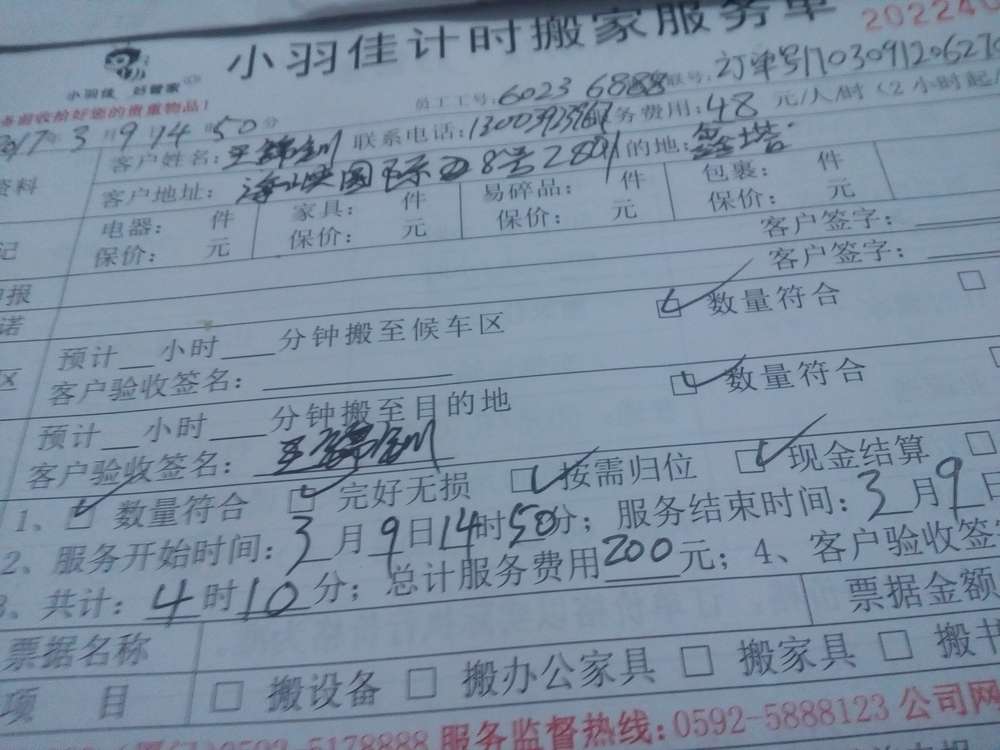 小羽佳计时搬家服务单
202240
小羽佳 好管家
您的贵重物品!
员工工号: 6023 6888 联号: 订单号170309120627
2017年3月9日14时50分
联系电话: 务费用: 48 元/人/时 (2小时起
客户姓名: 王
资料
客户地址: 海峡国际 8号 的地: 鑫塔
电器: 件 家具: 件 易碎品: 件 包裹: 件
记
保价: 元 保价: 元 保价: 元 保价: 元
客户签字:
申报
客户签字:
诺
预计 小时 分钟搬至候车区 数量符合
区
客户验收签名:
预计 小时 分钟搬至目的地 数量符合
客户验收签名: 王
1、 数量符合 完好无损 按需归位 现金结算
2、服务开始时间: 3月9日14时50分; 服务结束时间: 3月9日
3、共计: 4时10分; 总计服务费用200元; 4、客户验收签
票据名称 票据金额
项 目 搬设备 搬办公家具 搬家具 搬书
0592-5178888 服务监督热线: 0592-5888123 公司网